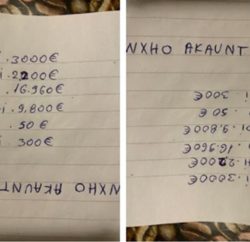 i. 3000€
i. 2200€
. 16.960€
i. 9.800€
. 50€
i 300€
NXHO AKAUNT
NXHO AKAUNT
i. 300€
. 50€
i. 9.800€
. 16.960
i. 2200
i. 3000€